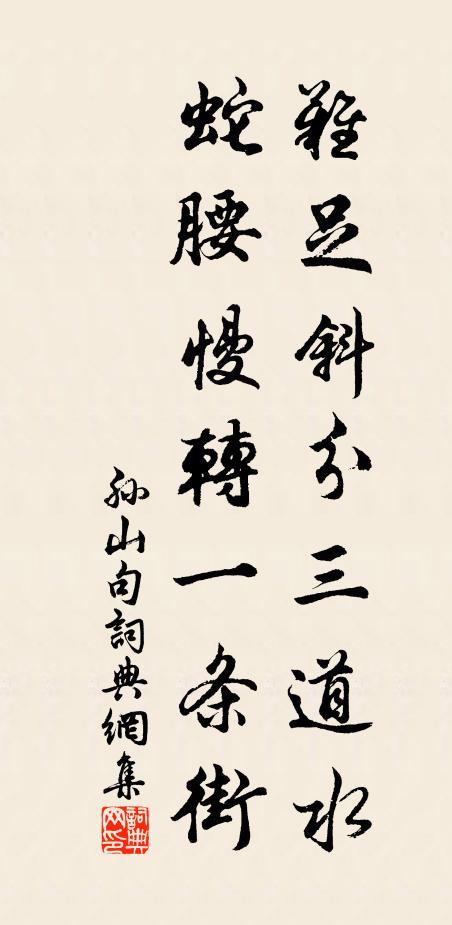 雞足斜分三道水
蛇腰慢轉一条街
孙山句詞典網集
詞典
网印